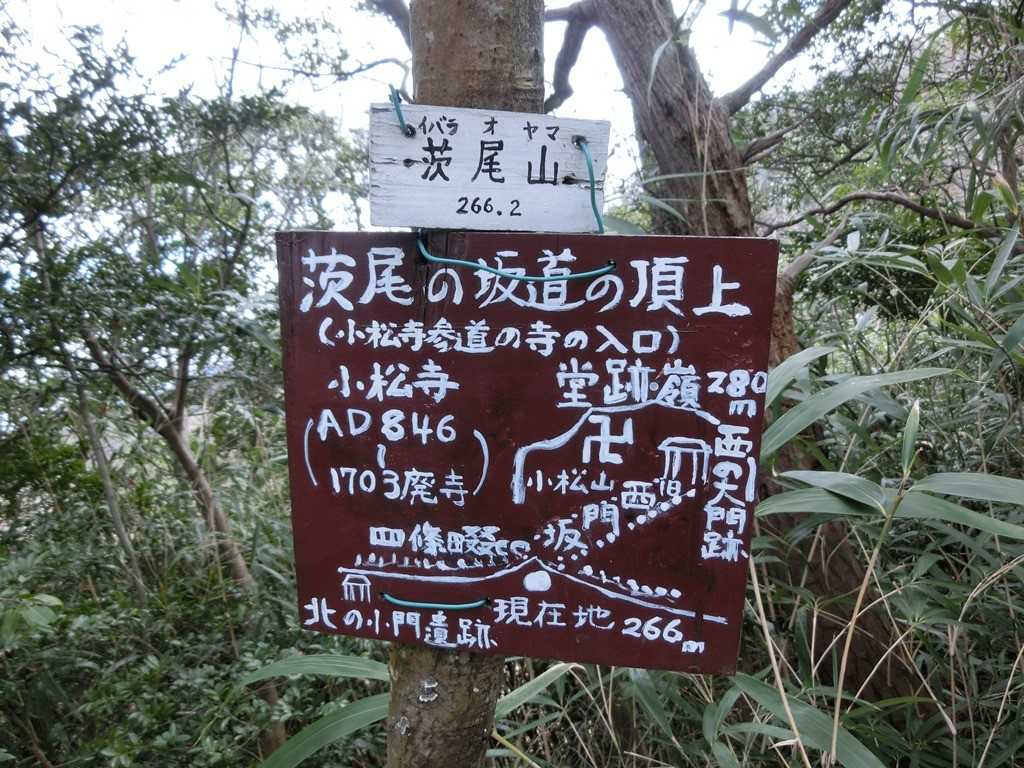 イバラ オ ヤマ
茨尾山
266.2
茨尾の坂道の頂上
(小松寺参道の寺の入口)
小松寺
(AD846
～
1703廃寺)
堂跡嶺 280m
卍
小松山
西の大門跡
西門坂
四條畷
北の小門遺跡
現在地 266m